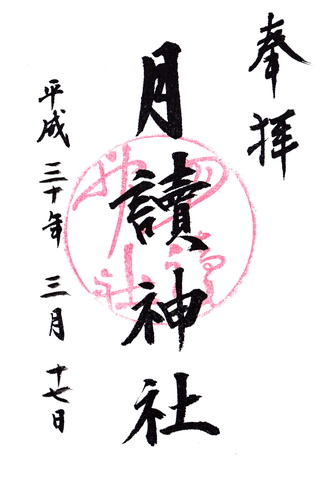 奉拝
月讀神社
平成三十年三月十七日
月讀
神社